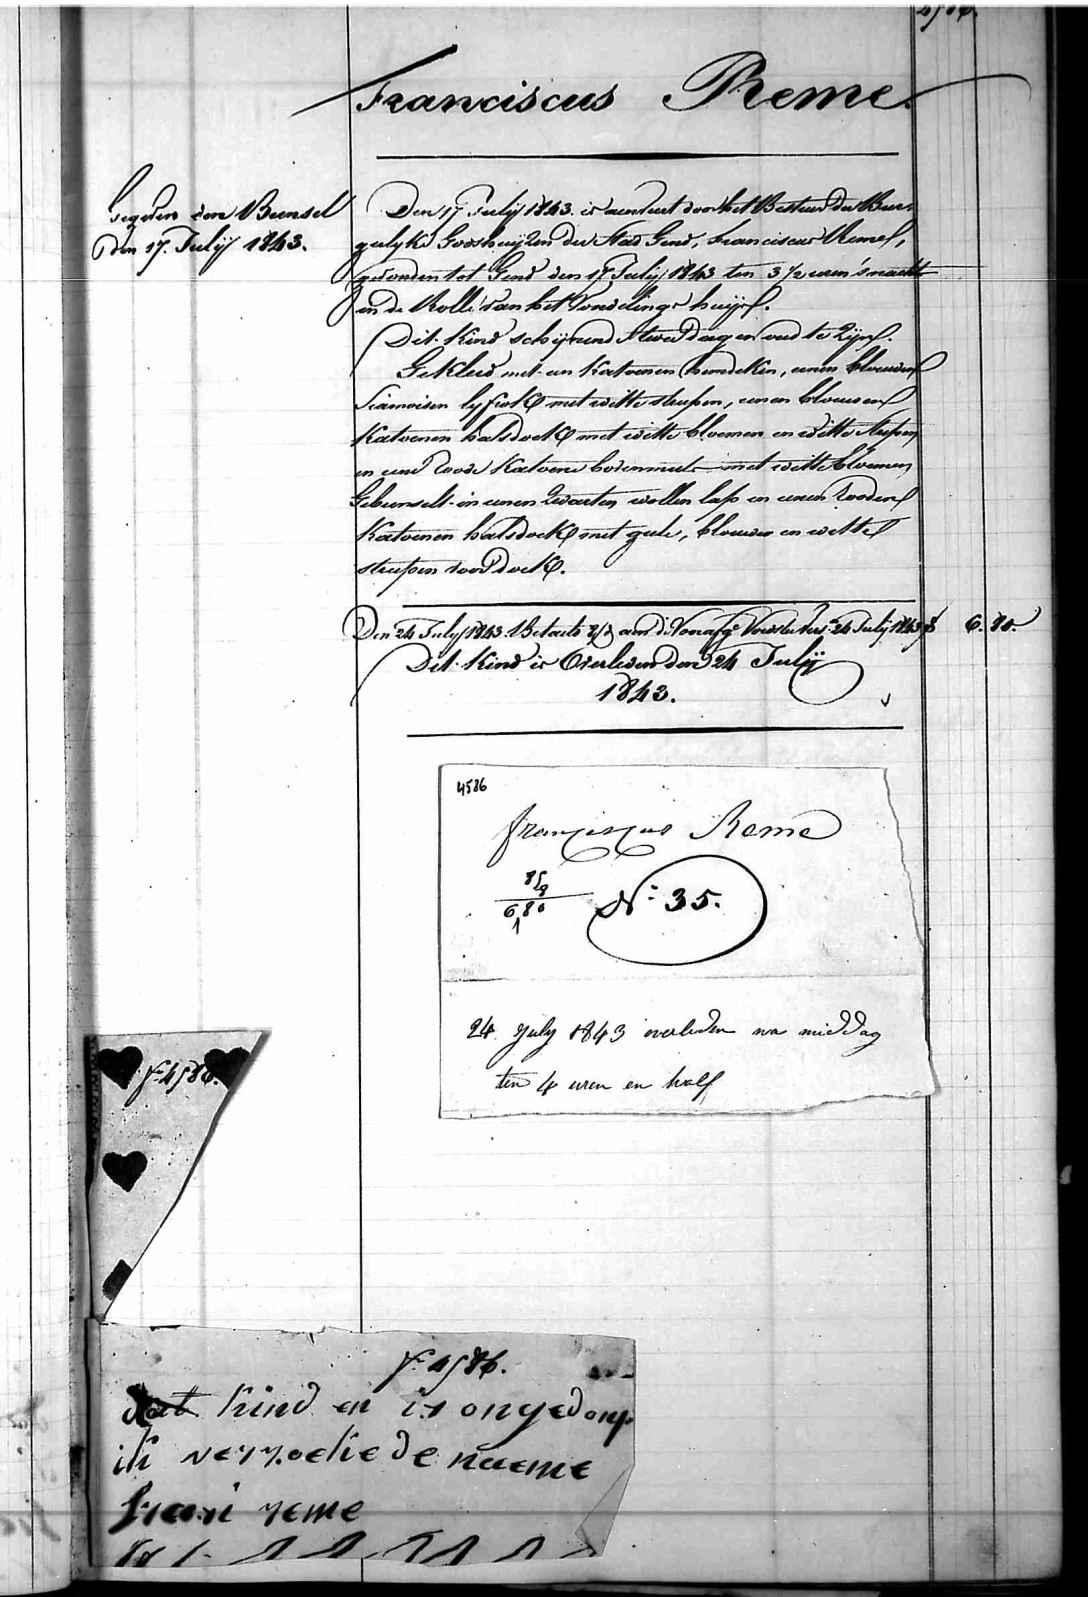 4586.
Franciscus Reme.
Gegeven een Bunsel
den 17. Julij 1843.
Den 17 Julij 1843. is aenveert door het Bestuer der Bur-
gelyke Godshuyzen der Stad Gend, Franciscus Reme,
gevonden tot Gend den 17 Julij 1843 ten 3 1/2 uren 's nachts
in de Rolle van het Vondelings huys.
Dit kind scheynende twee dagen oud te zyn.
Gekleed met een katoenen hemdeken, eenen blauwen
Siamoisen lyfrok met witte streepen, eenen blauwen
katoenen halsdoek met witte bloemen en witte streepen
en eene roode katoene bovenmuts met witte bloemen
Gebunselt in eenen zwarten wollen lap en eenen rooden
katoenen halsdoek met geele, blauwe en witte
streepen voor doek.
Den 24 July 1843 Betaelt aan de Voedster 24 July 1843 6. 80.
Dit kind is Overleden den 24 Julij
1843.
4586
franciscus Reme
85
8
6,80
N.° 35.
24 July 1843 overleden na middag
ten 4 uren en half
f.° 4586.
f.° 4586.
dat kind en is ongedoop
ik verzoeke de naeme
fransi reme